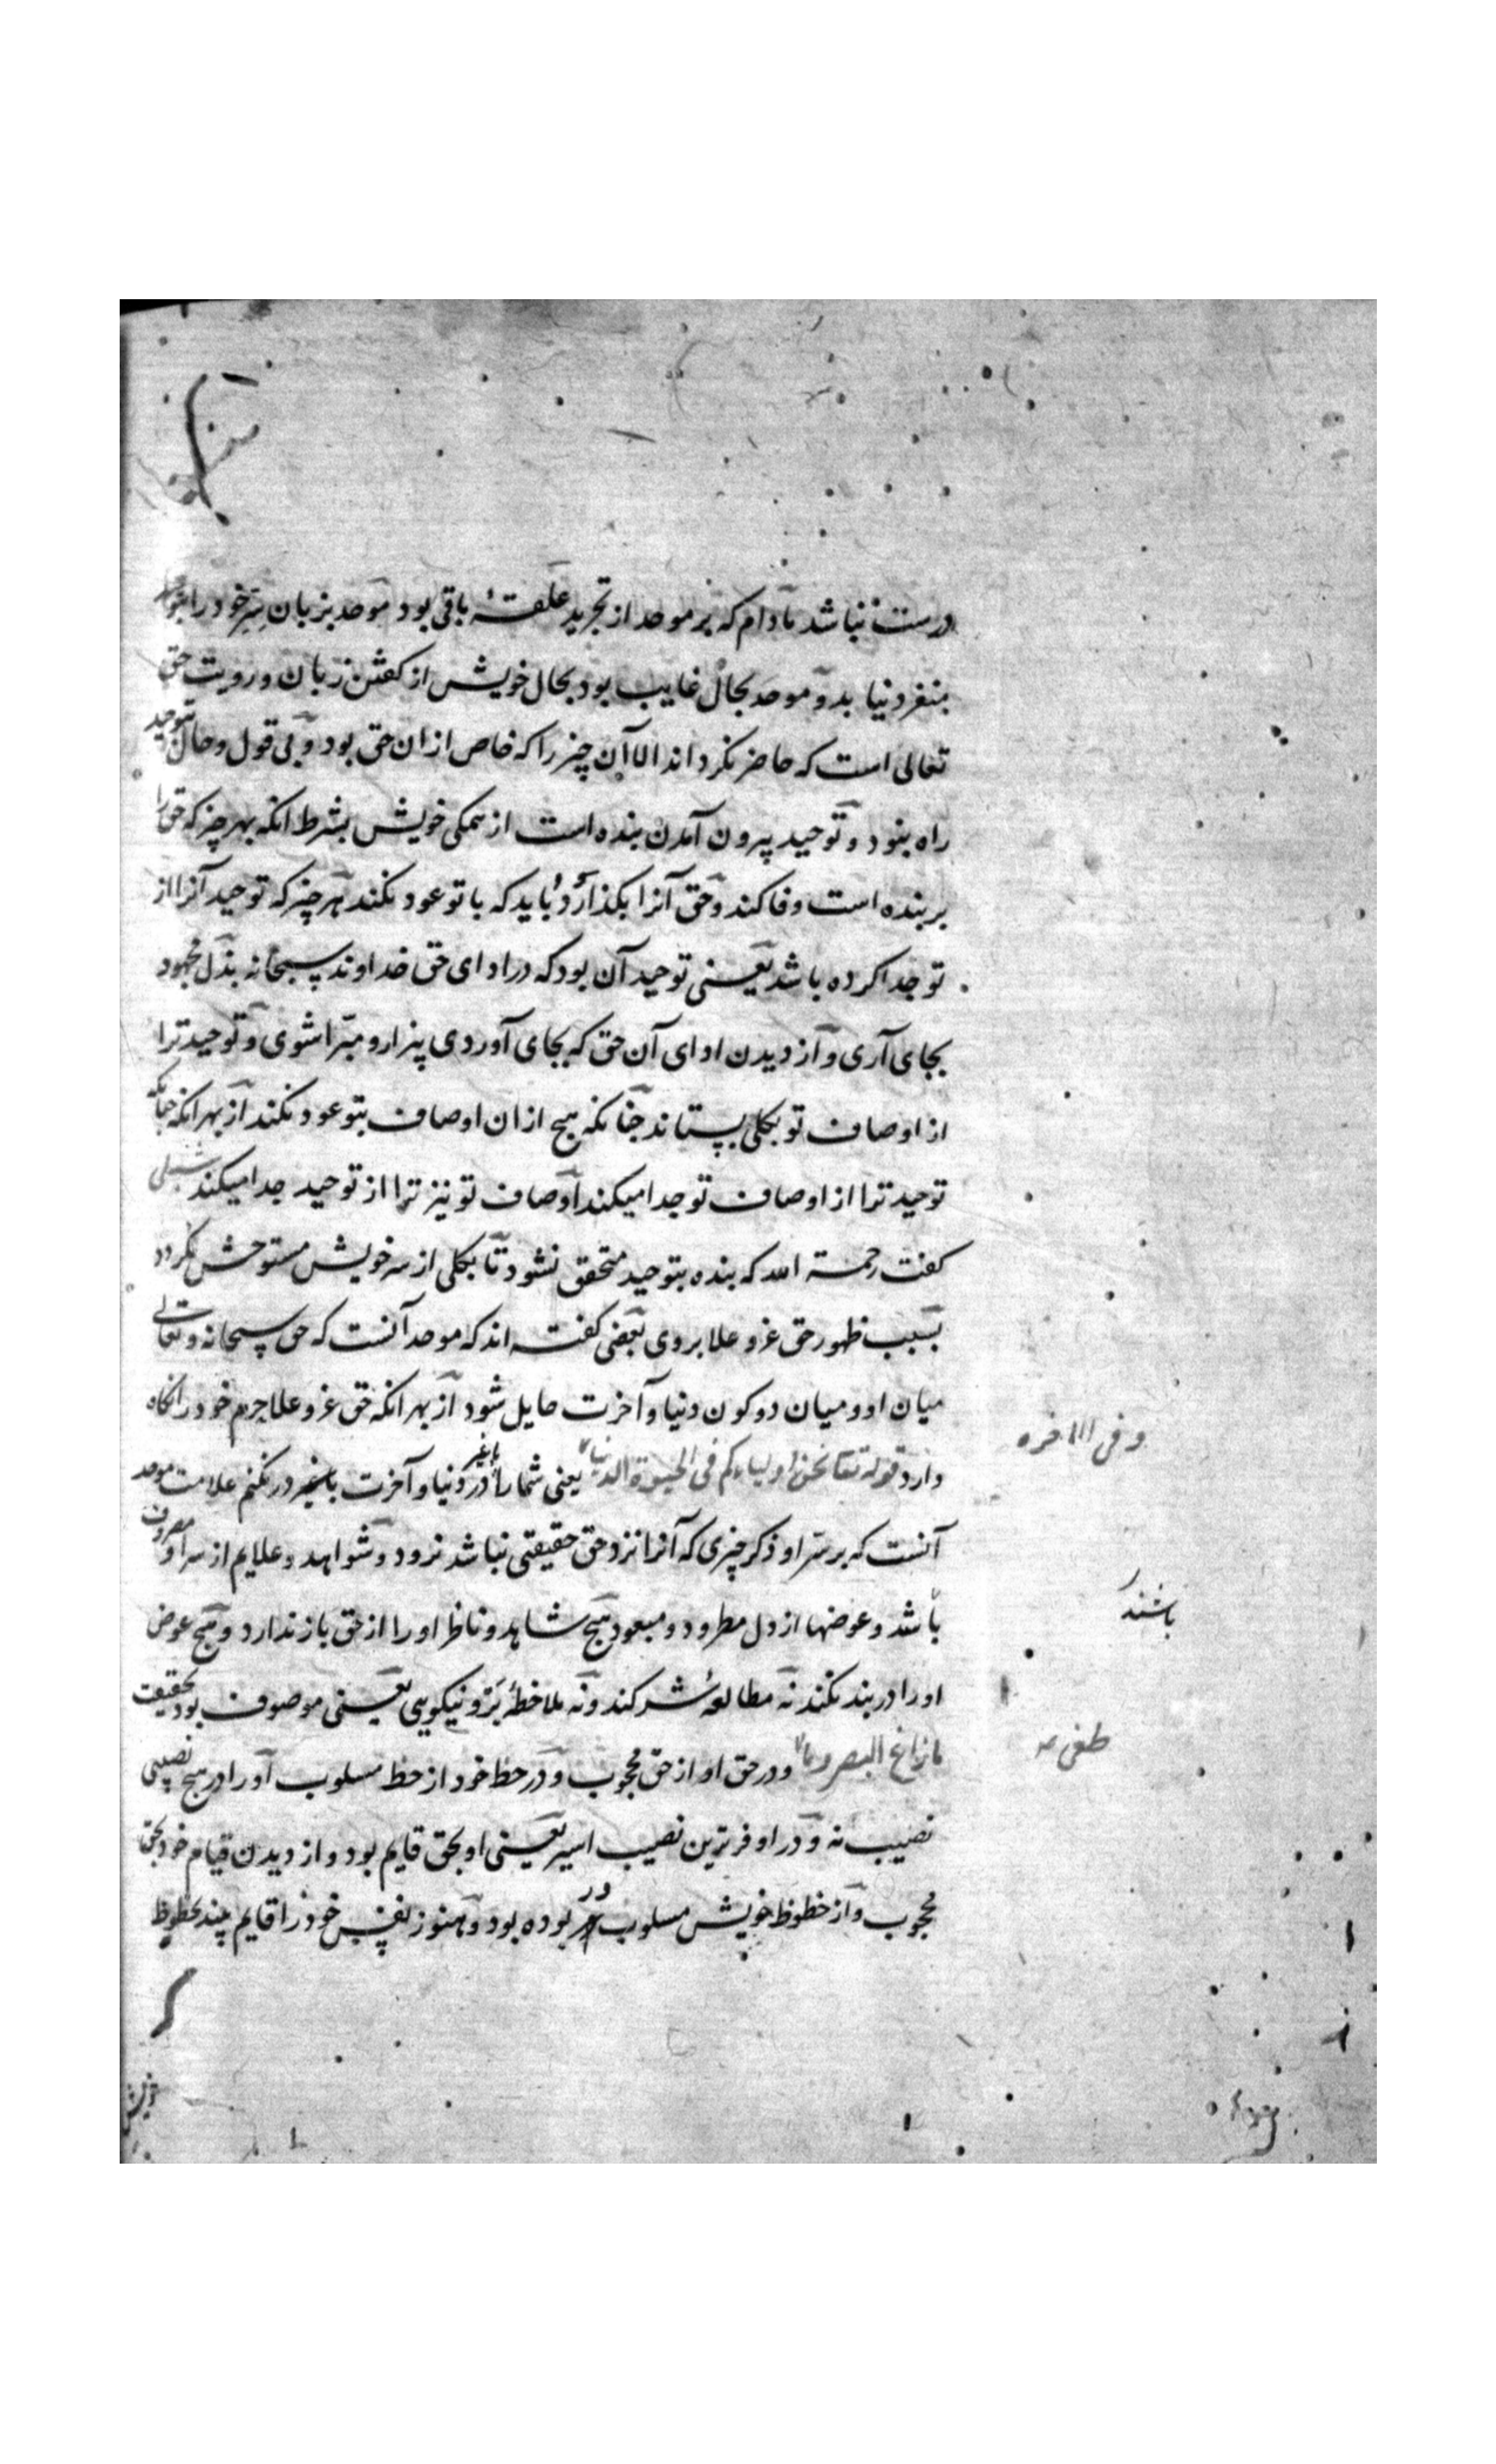 درست نباشد مادام که بر موحد از تجرید علقهٔ باقی بود موحد بزبان سرّ خود را بتوحید
منفرد نیابد و موحد بحال غایب بود بحال خویش از گفتن زبان و رویت حق
تعالی است که حاضر نکرداند الا آن چیز را که خاص از ان حق بود و بی قول و حال بتوحید
راه بنود و توحید بیرون آمدن بنده است از همکی خویش بشرط انکه بهر چیز که حق را
بر بنده است وفا کند و حق آنرا بکذارد و باید که با تو عود نکند هر چیز که توحید آنرا از
تو جدا کرده باشد یعنی توحید آن بود که در ادای حق خداوند سبحانه بذل مجهود
بجای آری و از دیدن ادای آن حق که بجای آوردی بیزار و مبرّا شوی و توحید ترا
از اوصاف تو بکلی بستاند جنانکه هیچ از ان اوصاف بتو عود نکند از بهر انکه جنانکه
توحید ترا از اوصاف تو جدا میکند اوصاف تو نیز ترا از توحید جدا میکند شبلی
کفت رحمة الله که بنده بتوحید متحقق نشود تا بکلی از سر خویش مستوحش نکردد
بسبب ظهور حق عز و علا بروی بعضی کفته اند که موحد آنست که حق سبحانه و تعالی
میان او و میان دو کون دنیا و آخرت حایل شود از بهر انکه حق عز و علا حرم خود را نکاه
دارد قوله تعا نحن اولیاءکم فی الحیوة الدنیا یعنی شما را در دنیا و آخرت باغیر در نکنم علامت موحد
وفی الاخره
باغیر
آنست که بر سرّ او ذکر چیزی که آنرا نزد حق حقیقتی نباشد نرود و شواهد و علایم از سر او مصروف
باشد و عوضها از دل مطرود و مبعود هیچ شاهد و ناظر او را از حق باز ندارد و هیچ عوض
باشند
او را در بند نکند نه مطالعهٔ شر کند و نه ملاحظهٔ برّ و نیکویی یعنی موصوف بود بحقیقت
مازاغ البصر وما و در حق او از حق محجوب و در حظ خود از حظ مسلوب او را در هیچ نصیبی
طغی
نصیب نه و در اوفرترین نصیب اسیر یعنی او بحق قایم بود و از دیدن قیام خود بحق
محجوب و از حظوظ خویش مسلوب بوده بود و هنوز نفس خود را قایم بیند بحظوظ
در
خویش